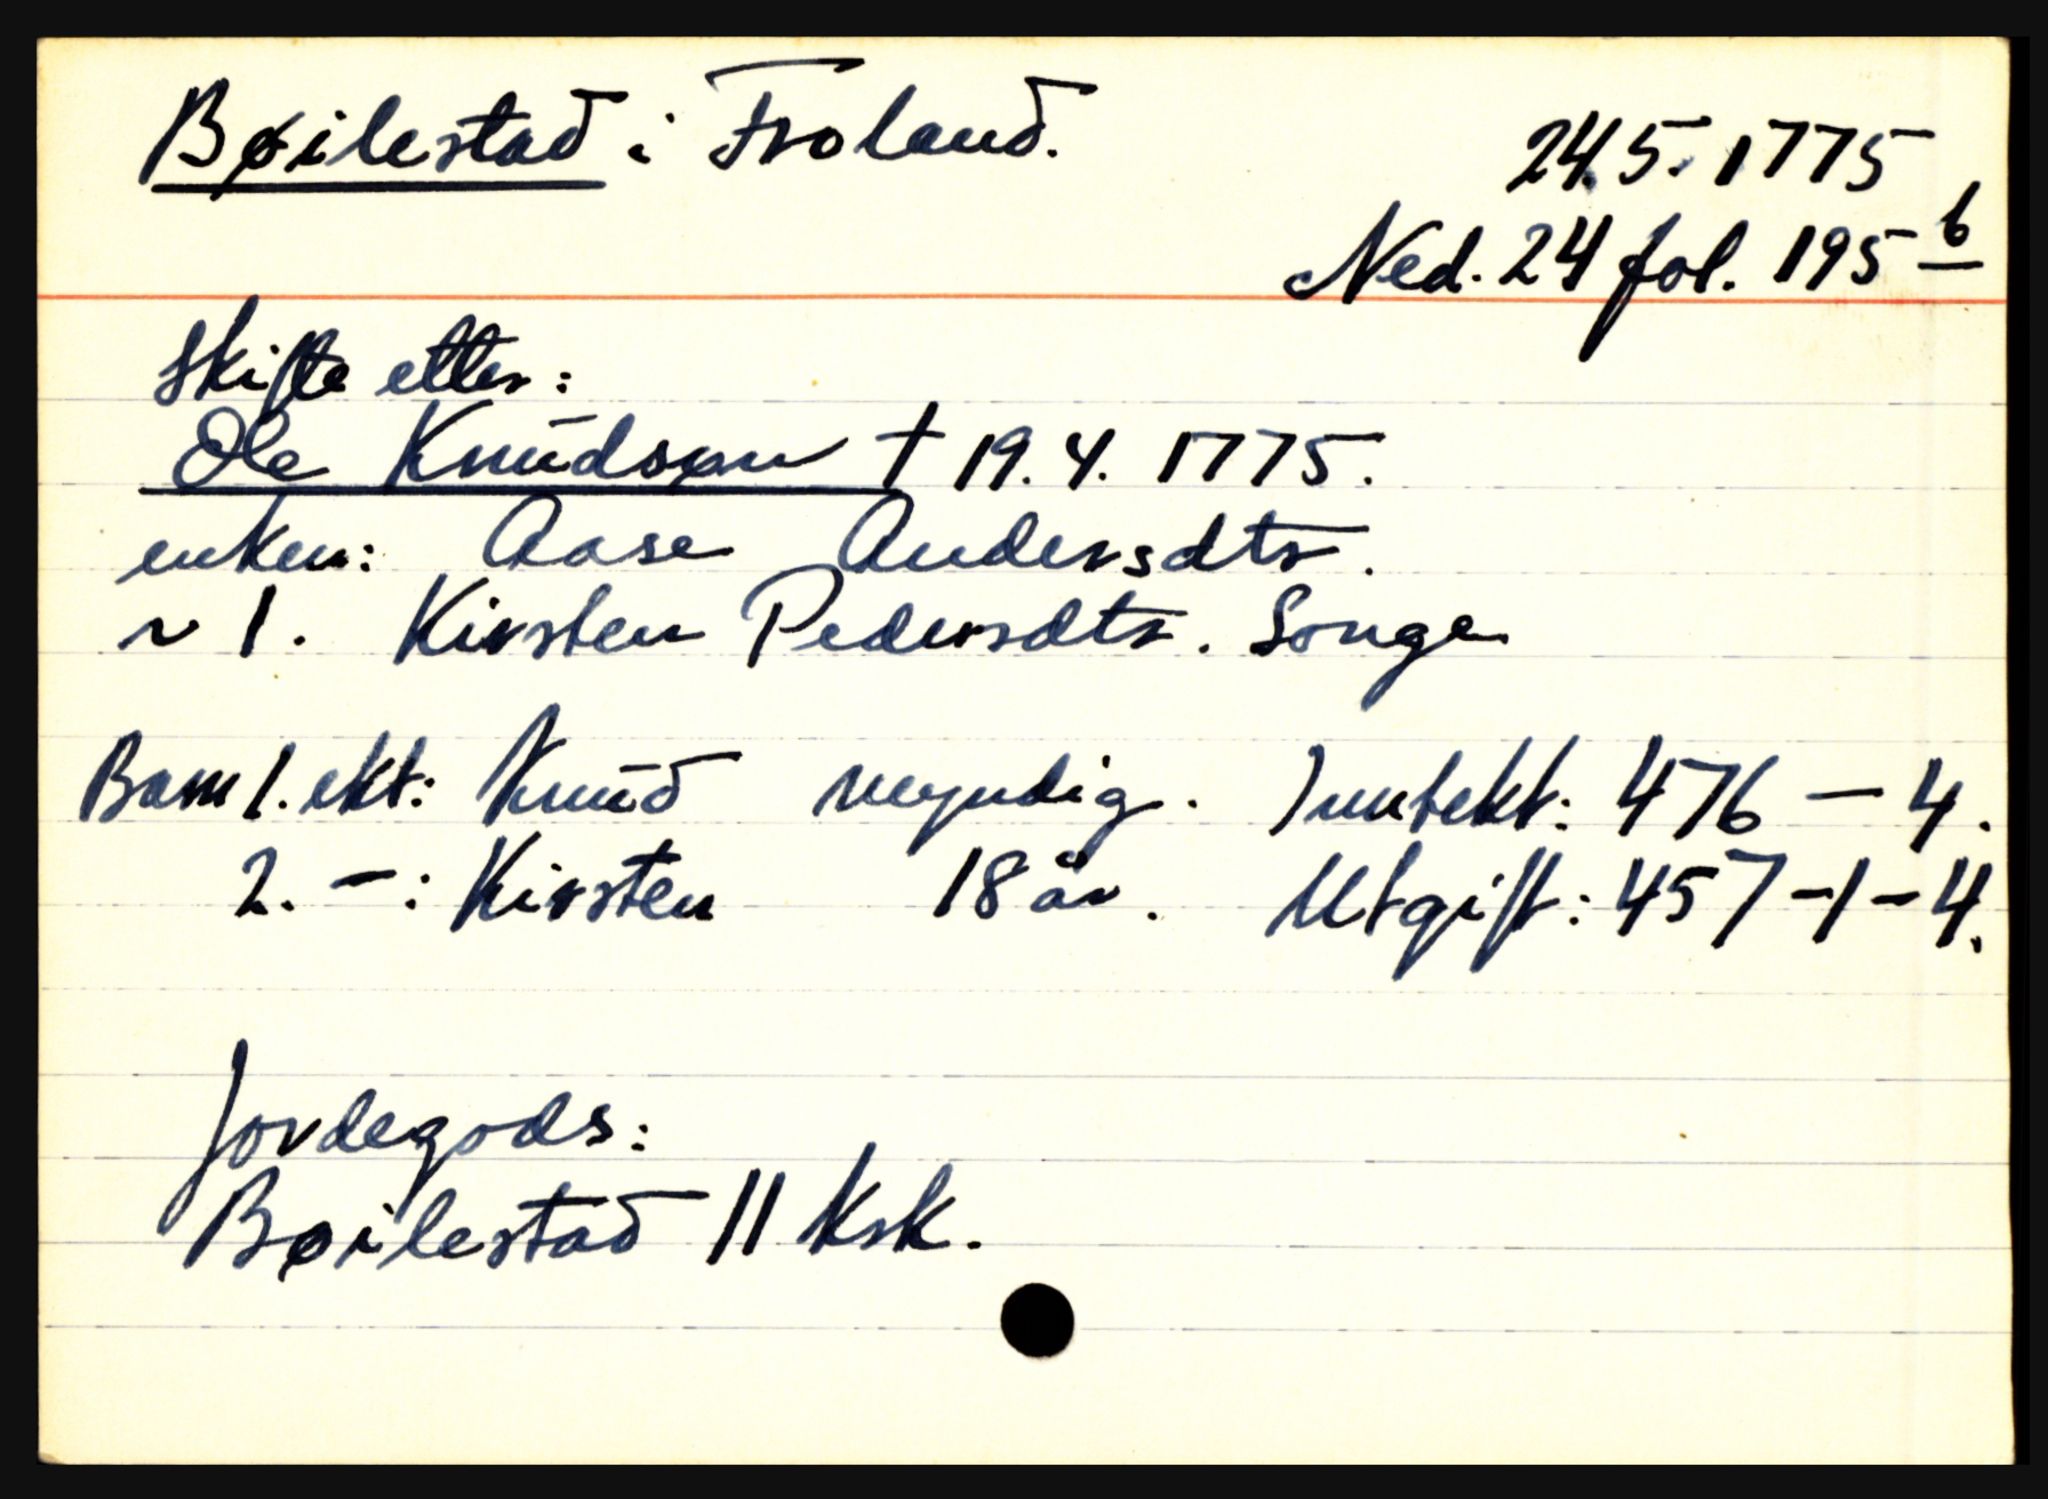 Bøilestad i Froland.
24.5.1775
Ned. 24 fol. 195 b
Skifte etter:
Ole Knudsøn † 19.4.1775.
enken: Aase Andersdtr.
~ 1. Kirsten Pedersdtr. Songe
Barn 1. ekt: Knud myndig. Inntekt: 476 – 4.
2. –: Kirsten 18 år. Utgift: 457 – 1 – 4.
Jordegods:
Bøilestad 11 ksk.